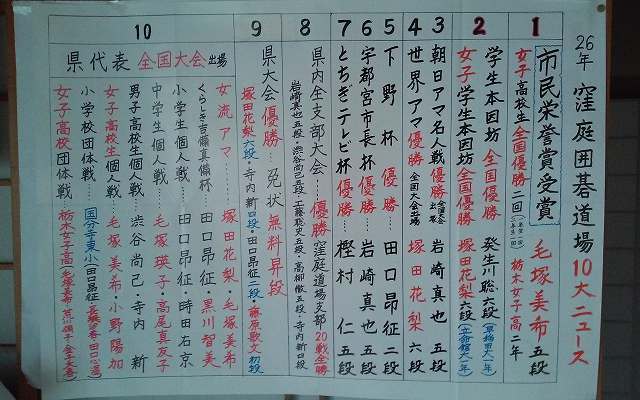 26年 窪庭囲碁道場 10大ニュース
1
市民栄誉賞受賞 毛塚美希 五段
女子高校生全国優勝二回 栃木女子高二年
2
学生本因坊 全国優勝 発生川聡 六段
(早稲田大一年)
女子学生本因坊 全国優勝 塚田花梨 六段
(立命館大一年)
3
朝日アマ名人戦 優勝 岩崎真也 五段
4
世界アマ 優勝 全国大会出場 塚田花梨 六段
5
下野杯 優勝 田口昂征 二段
6
宇都宮市長杯 優勝 岩崎真也 五段
7
とちぎテレビ杯 優勝…樫村 仁 五段
8
県内全支部大会…優勝 窪庭道場支部 20戦全勝
岩崎真也五段・渋谷尚己五段・工藤聡史五段・高柳徹五段・寺内新四段
9
県大会優勝…免状無料昇段
塚田花梨六段・寺内新四段・田口昂征二段・藤原歌文初段
10
県代表 全国大会出場
女流アマ………塚田花梨・毛塚美希
くらしき吉備真備杯…田口昂征・黒川智美
小学生個人戦……田口昂征・時田右京
中学生個人戦……毛塚瑛子・高尾真友子
男子高校生個人戦…渋谷尚己・寺内 新
女子高校生個人戦…毛塚美希・小野陽加
小学校団体戦
国分寺東小(田口昂征
女子高校団体戦
栃木女子高(毛塚美希